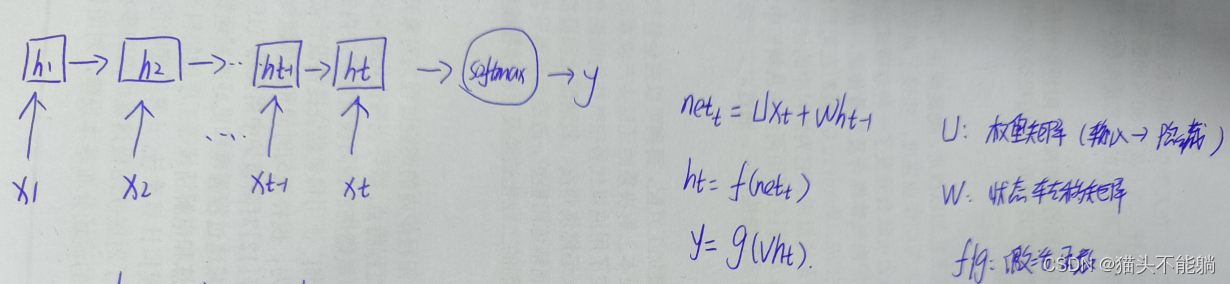 h1 → h2 → ... ht-1 → ht → softmax → y
x1 x2 .... xt-1 xt
net_t = Uxt + Wht-1
ht = f(net_t)
y = g(Vht).
U: 权重矩阵 (输入→隐藏)
W: 状态转移矩阵
f/g: 激活函数
CSDN @猫头不能躺